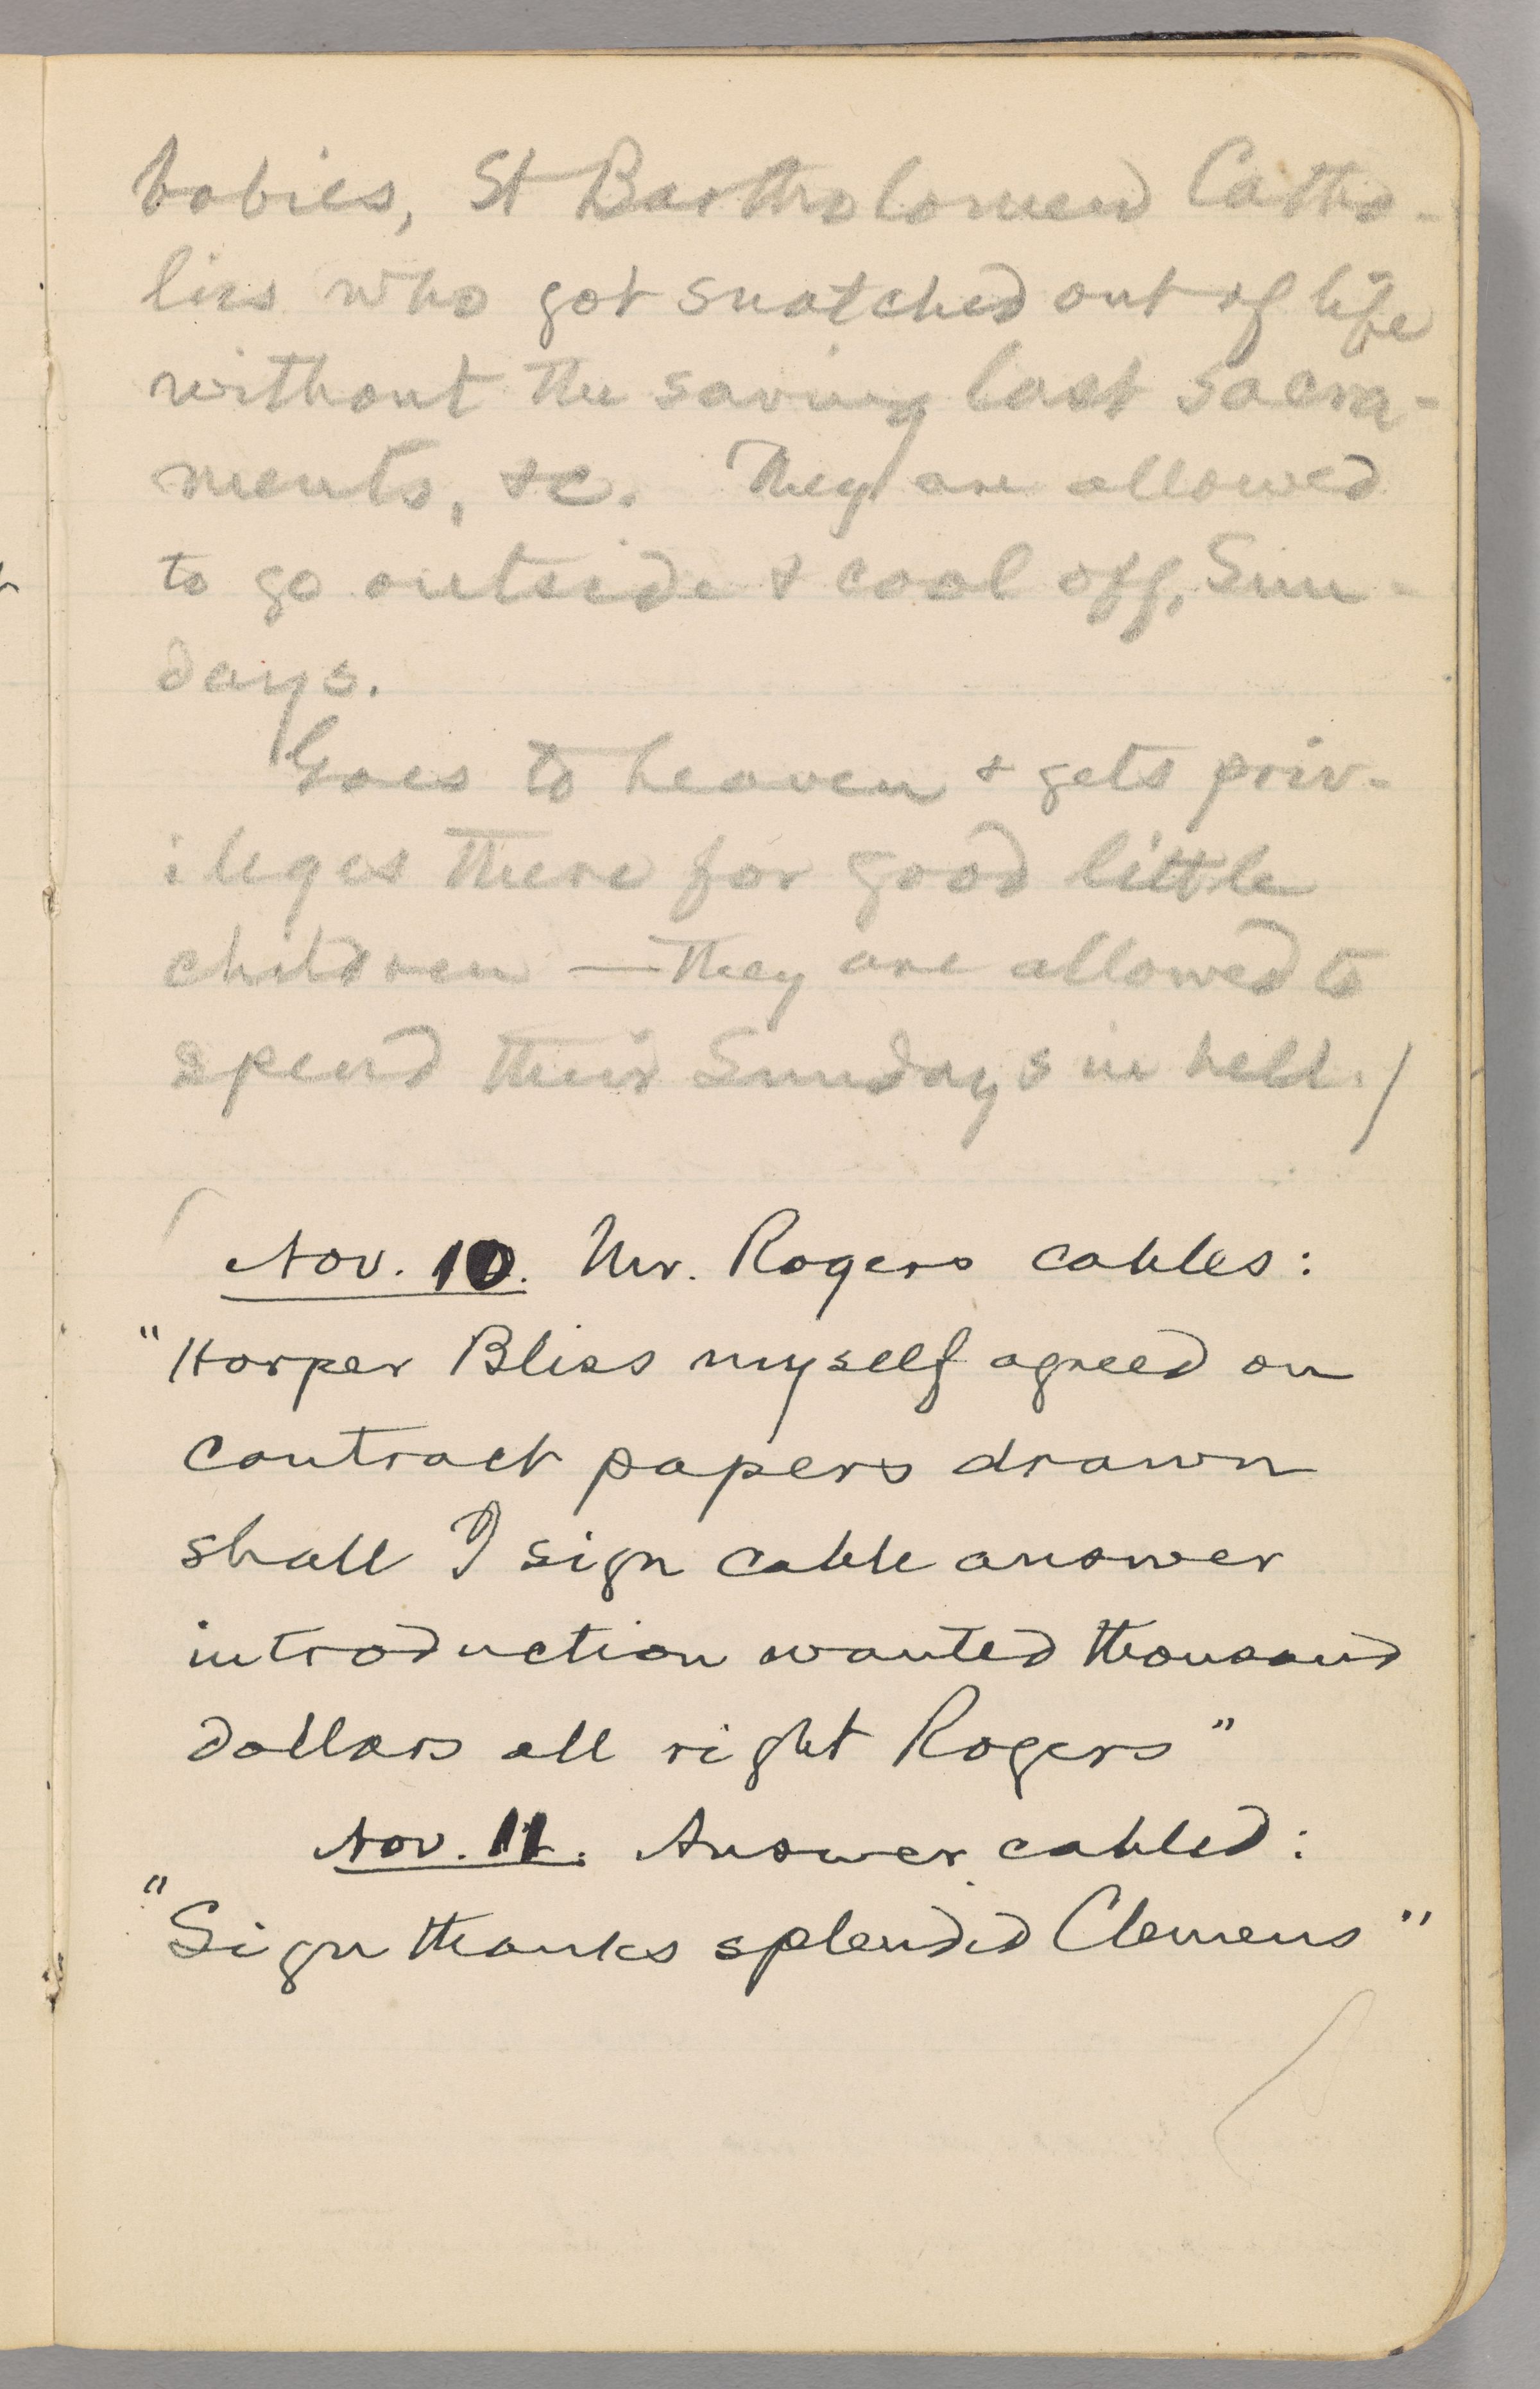 babies, St Bartholomew Catho-
lics who got snatched out of life
without the saving last sacra-
ments, &c. They are allowed
to go outside & cool off, Sun-
days.
Goes to heaven & gets priv-
ileges there for good little
children — they are allowed to
spend their Sundays in hell.
Nov. 10. Mr. Rogers cables:
"Harper Bliss myself agreed on
contract papers drawn
shall I sign cable answer
introduction wanted thousand
dollars all right Rogers"
Nov. 11. Answer cabled:
"Sign thanks splendid Clemens"